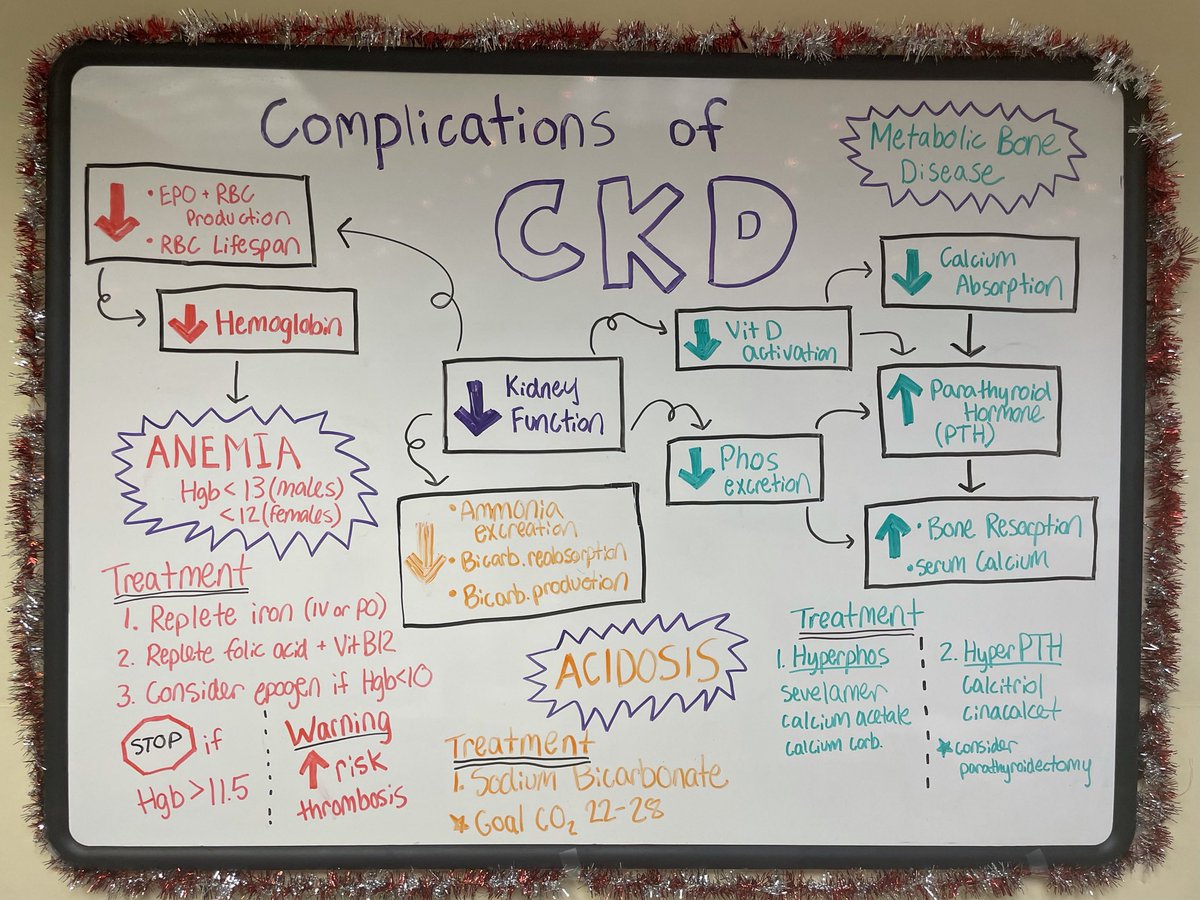 Complications of
CKD
Metabolic Bone
Disease
↓ • EPO + RBC
Production
• RBC Lifespan
↓ Hemoglobin
ANEMIA
Hgb < 13 (males)
< 12 (females)
Treatment
1. Replete iron (IV or PO)
2. Replete folic acid + Vit B12
3. Consider epogen if Hgb<10
STOP if
Hgb > 11.5
Warning
↑ risk
thrombosis
↓ Kidney
Function
↓ • Ammonia
excreation
• Bicarb. reabsorption
• Bicarb. production
ACIDOSIS
Treatment
1. Sodium Bicarbonate
★ Goal CO₂ 22-28
↓ Vit D
activation
↓ Phos
excretion
↓ Calcium
Absorption
↑ Parathyroid
Hormone
(PTH)
↑ • Bone Resorption
• serum Calcium
Treatment
1. Hyperphos
sevelamer
calcium acetate
calcium carb.
2. HyperPTH
Calcitriol
cinacalcet
★ consider
parathyroidectomy